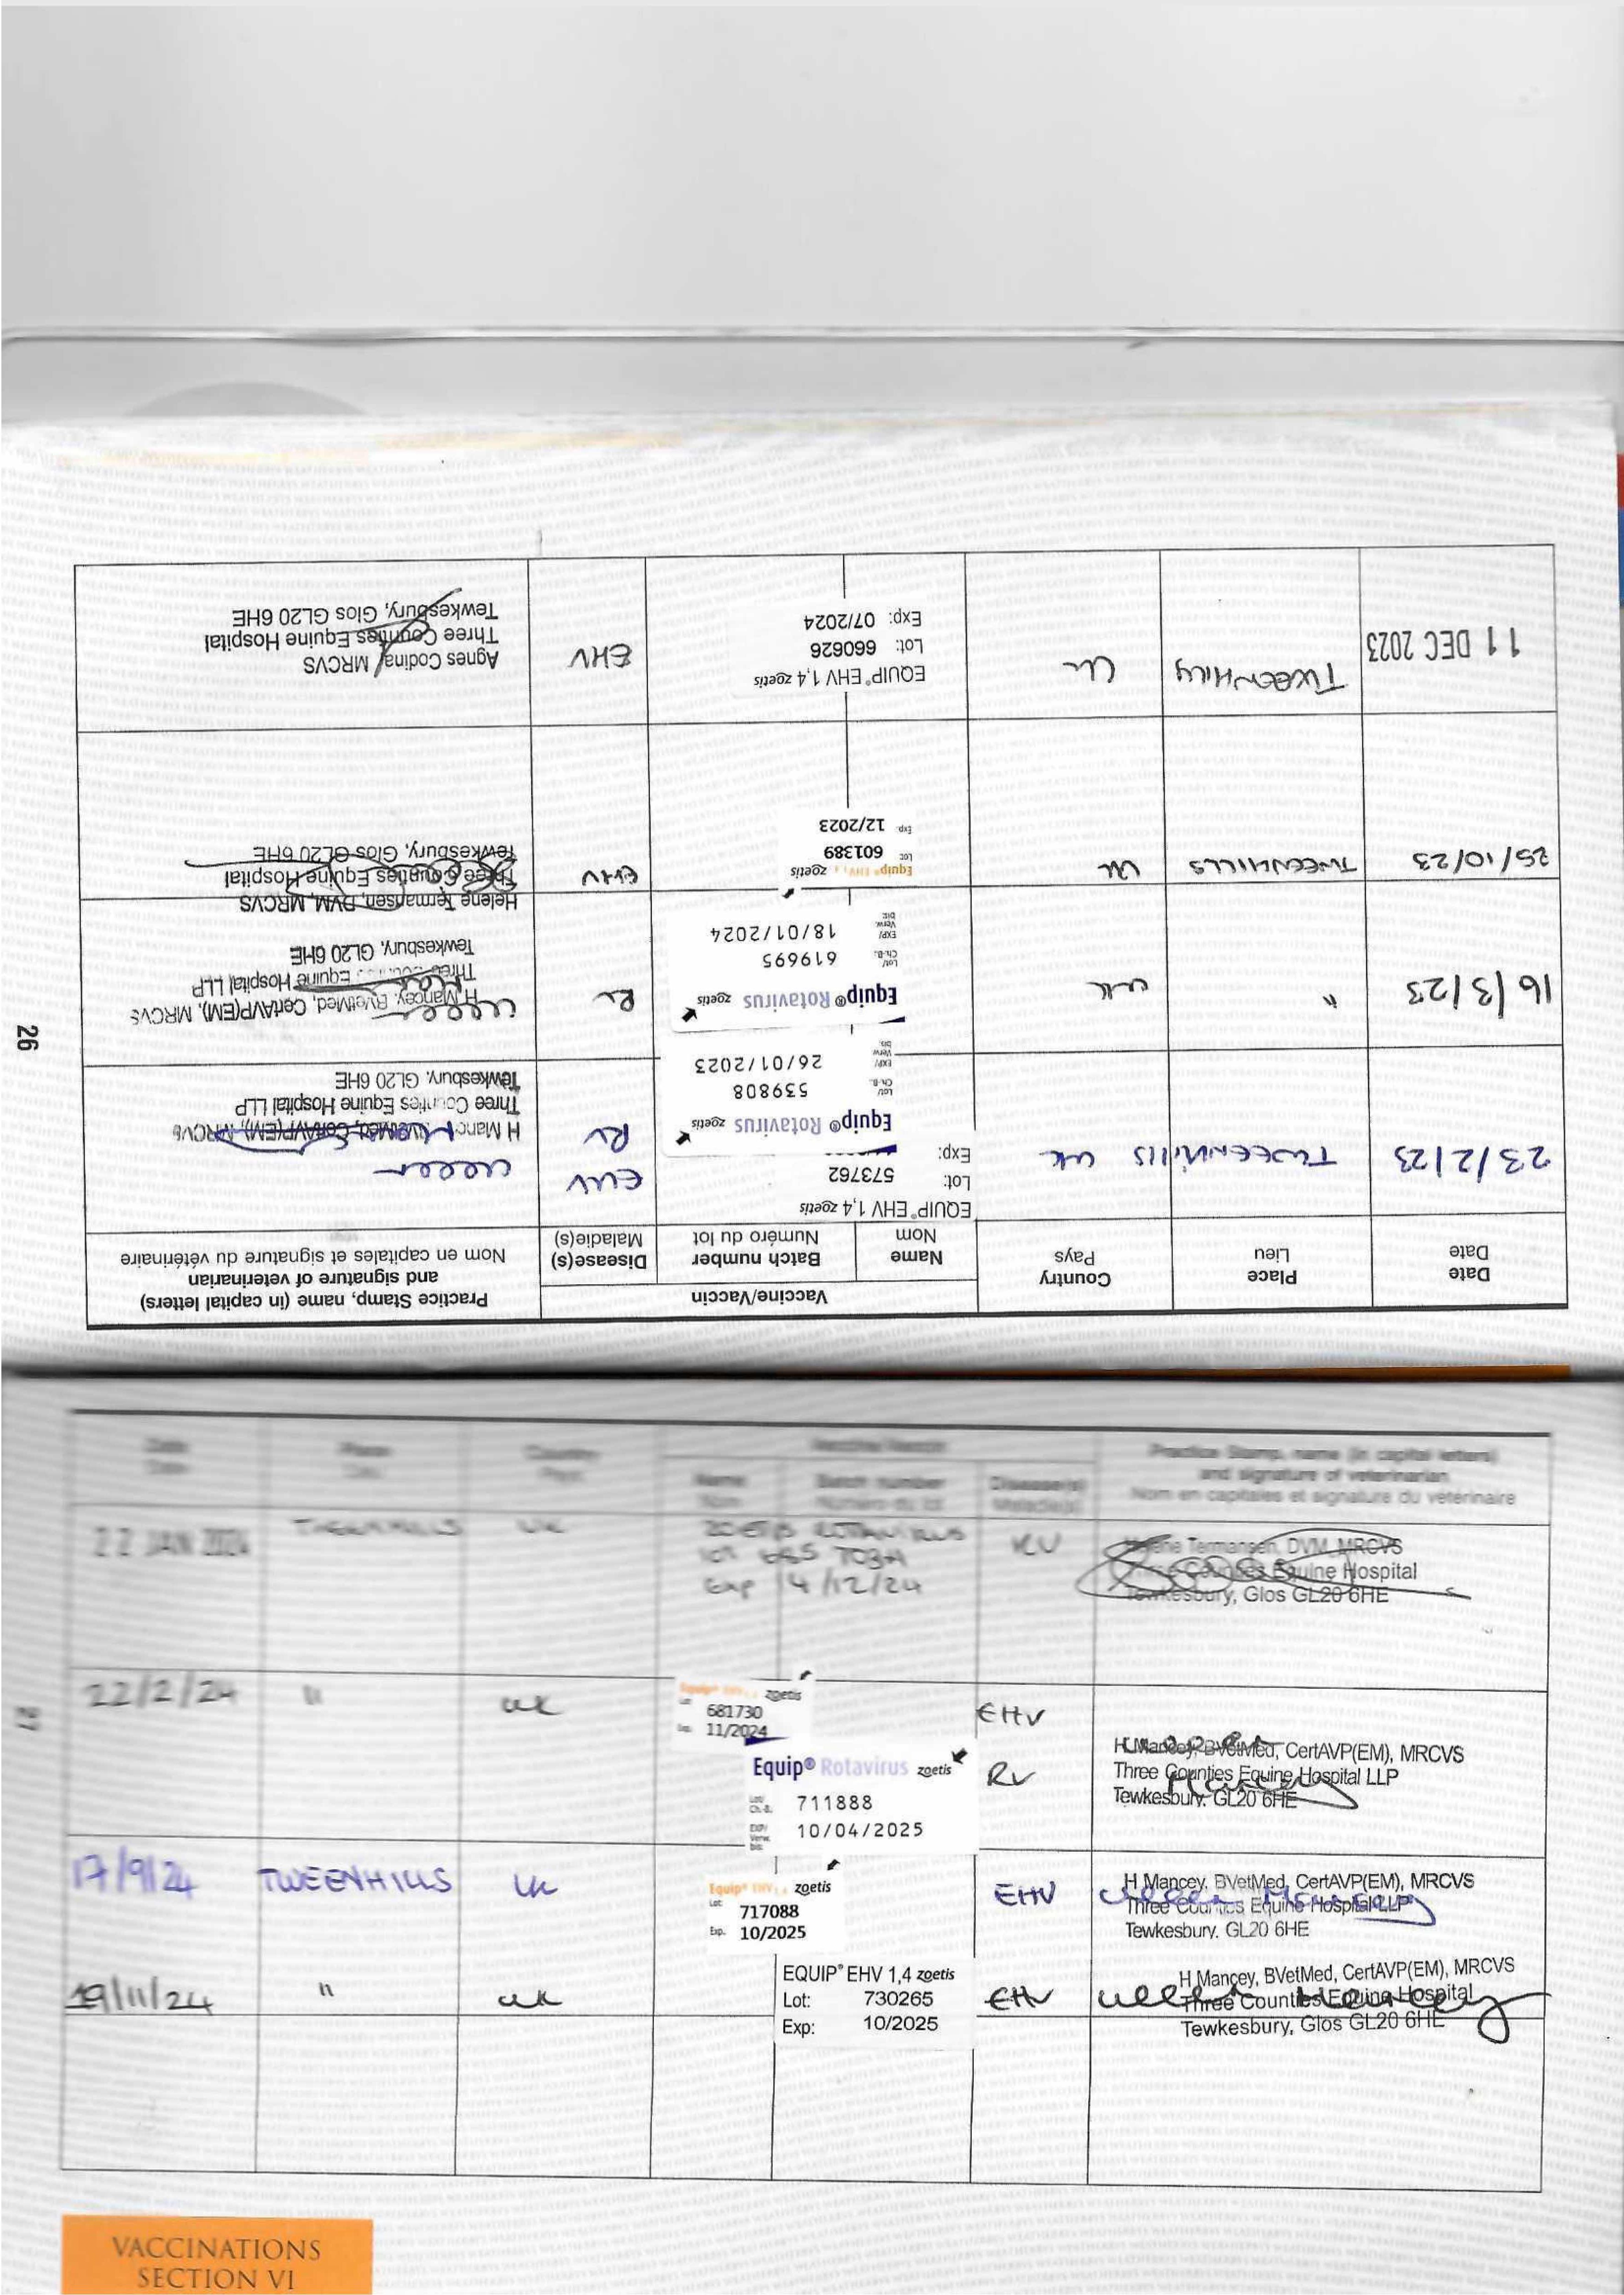 26
Date
Date
Place
Lieu
Country
Pays
Vaccine/Vaccin
Name
Nom
Batch number
Numéro du lot
Disease(s)
Maladie(s)
Practice Stamp, name (in capital letters)
and signature of veterinarian
Nom en capitales et signature du vétérinaire
23/2/23
TWEENHILLS
UK
EQUIP® EHV 1,4 zoetis
Lot: 573762
Exp:
EHV
Equip® Rotavirus zoetis
Lot/ Ch.-B. 539808
EXP/ Verw. bis: 26/01/2023
RV
H Mancey, BVetMed, CertAVP(EM), MRCVS
Three Counties Equine Hospital LLP
Tewkesbury, GL20 6HE
16/3/23
"
UK
Equip® Rotavirus zoetis
Lot/ Ch.-B. 619695
EXP/ Verw. bis: 18/01/2024
RV
H Mancey, BVetMed, CertAVP(EM), MRCVS
Three Counties Equine Hospital LLP
Tewkesbury, GL20 6HE
25/10/23
TWEENHILLS
UK
Equip® EHV 1,4 zoetis
Lot 601389
Exp 12/2023
EHV
Helene Termansen, DVM, MRCVS
Three Counties Equine Hospital
Tewkesbury, Glos GL20 6HE
11 DEC 2023
TWEENHILLS
UK
EQUIP® EHV 1,4 zoetis
Lot: 660626
Exp: 07/2024
EHV
Agnes Codina MRCVS
Three Counties Equine Hospital
Tewkesbury, Glos GL20 6HE
27
Date
Date
Place
Lieu
Country
Pays
Vaccine/Vaccin
Name
Nom
Batch number
Numéro du lot
Disease(s)
Maladie(s)
Practice Stamp, name (in capital letters)
and signature of veterinarian
Nom en capitales et signature du vétérinaire
22 JAN 2024
TWEENHILLS
UK
ZOETIS ROTAVIRUS
Exp 14/12/24
RV
Helene Termansen, DVM, MRCVS
Three Counties Equine Hospital
Tewkesbury, Glos GL20 6HE
22/2/24
"
UK
Equip® EHV 1,4 zoetis
Lot 681730
Exp. 11/2024
EHV
Equip® Rotavirus zoetis
Lot/ Ch.-B. 711888
EXP/ Verw. bis: 10/04/2025
RV
H Mancey, BVetMed, CertAVP(EM), MRCVS
Three Counties Equine Hospital LLP
Tewkesbury. GL20 6HE
17/9/24
TWEENHILLS
UK
Equip® EHV 1,4 zoetis
Lot 717088
Exp. 10/2025
EHV
H Mancey, BVetMed, CertAVP(EM), MRCVS
Three Counties Equine Hospital LLP
Tewkesbury. GL20 6HE
19/11/24
"
UK
EQUIP® EHV 1,4 zoetis
Lot: 730265
Exp: 10/2025
EHV
H Mancey, BVetMed, CertAVP(EM), MRCVS
Three Counties Equine Hospital
Tewkesbury, Glos GL20 6HE
VACCINATIONS
SECTION VI